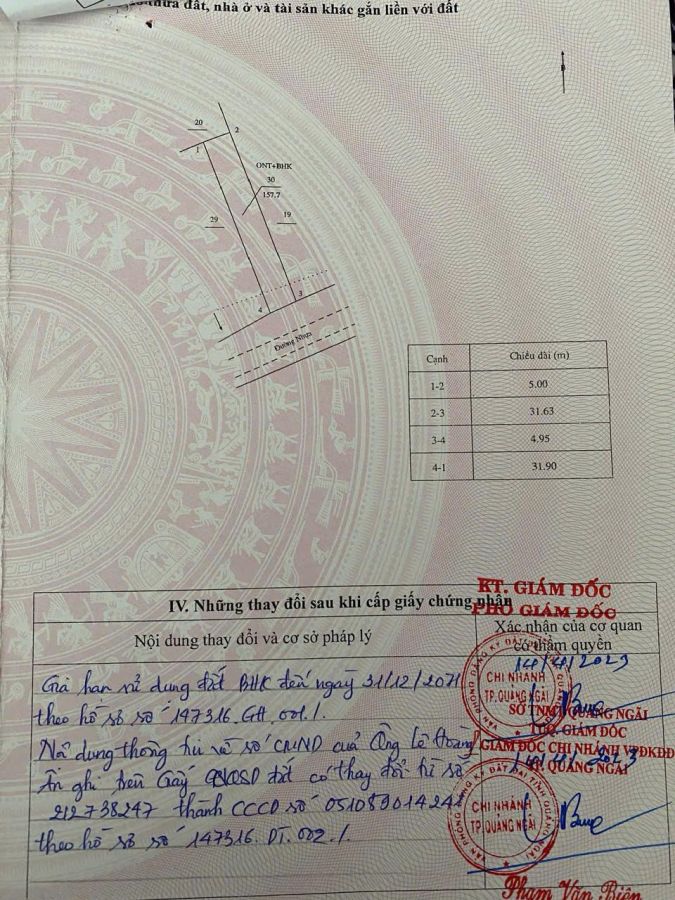 thửa đất, nhà ở và tài sản khác gắn liền với đất
20
2
1
ONT+BHK
30
157,7
29
19
3
4
Đường Nhựa
Cạnh Chiều dài (m)
1-2 5.00
2-3 31.63
3-4 4.95
4-1 31.90
KT. GIÁM ĐỐC
PHÓ GIÁM ĐỐC
IV. Những thay đổi sau khi cấp giấy chứng nhận
Nội dung thay đổi và cơ sở pháp lý
Xác nhận của cơ quan
có thẩm quyền
14/4/2023
Gia hạn sử dụng đất BHK đến ngày 31/12/2071
theo hồ sơ số 147316.GH.001./
VĂN PHÒNG ĐĂNG KÝ ĐẤT ĐAI TỈNH QUẢNG NGÃI
CHI NHÁNH
TP.QUẢNG NGÃI
SỞ TNMT QUẢNG NGÃI
TUQ. GIÁM ĐỐC
GIÁM ĐỐC CHI NHÁNH VPĐKĐĐ
TP. QUẢNG NGÃI
Nội dung thông tin về số CMND của Ông Lê Hoàng
Ân ghi trên Giấy CNQSD đất có thay đổi từ số
212738247 thành CCCD số
theo hồ sơ số 147316.DT.002./
14/4/2023
VĂN PHÒNG ĐĂNG KÝ ĐẤT ĐAI TỈNH QUẢNG NGÃI
CHI NHÁNH
TP.QUẢNG NGÃI
Phạm Văn Biên